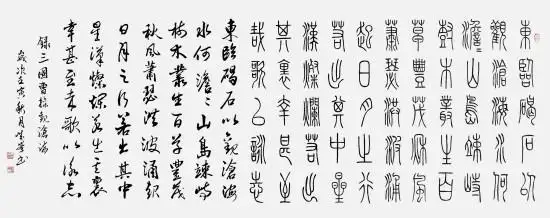 東臨碣石以
觀滄海水何
澹〻山島竦峙
樹木叢生百
草豐茂秋風
蕭瑟洪波涌
起日月之行
若出其中星
漢燦爛若出
其裏幸甚至
哉歌以詠志
東臨碣石以觀滄海
水何澹〻山島竦峙
樹木叢生百草豐茂
秋風蕭瑟洪波涌起
日月之行若出其中
星漢燦爛若出其裏
幸甚至哉歌以詠志
錄三國曹操觀滄海
歲次壬寅秋月書